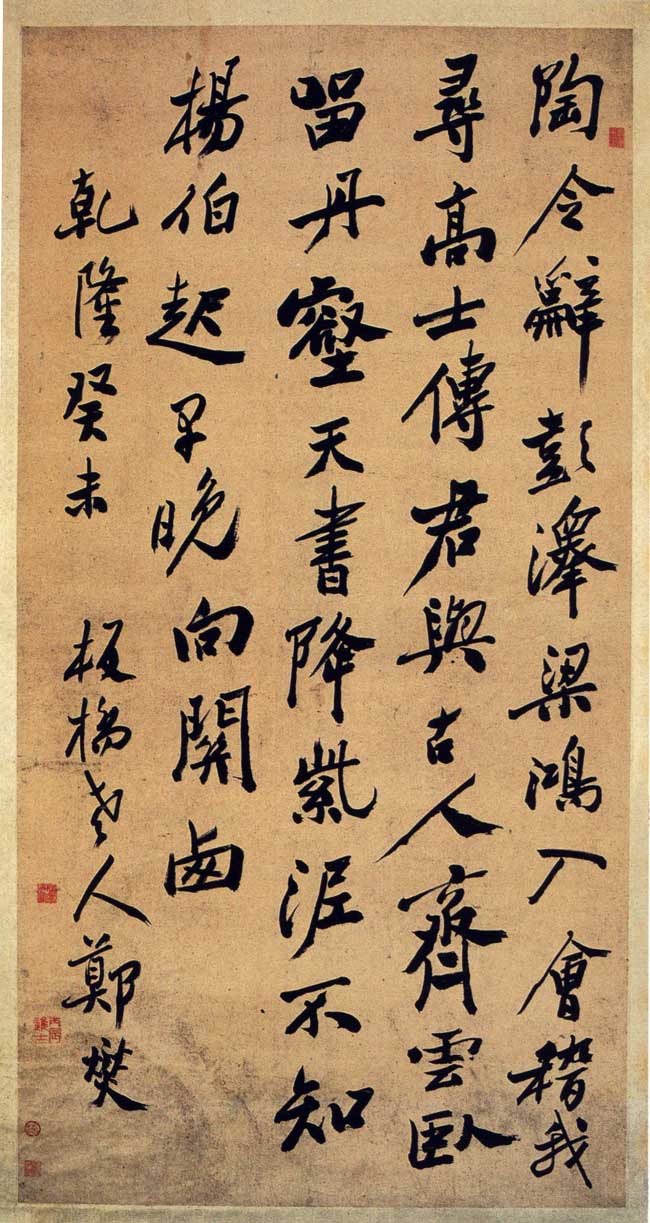 陶令辭彭澤梁鴻入會稽我
尋高士傳君與古人齊雲臥
留丹壑天書降紫泥不知
楊伯起早晚向關西
乾隆癸未 板橋老人鄭燮
丙辰進士